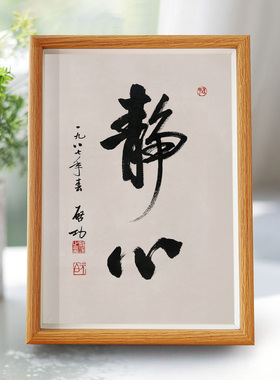 静心
一九八七年春 启功